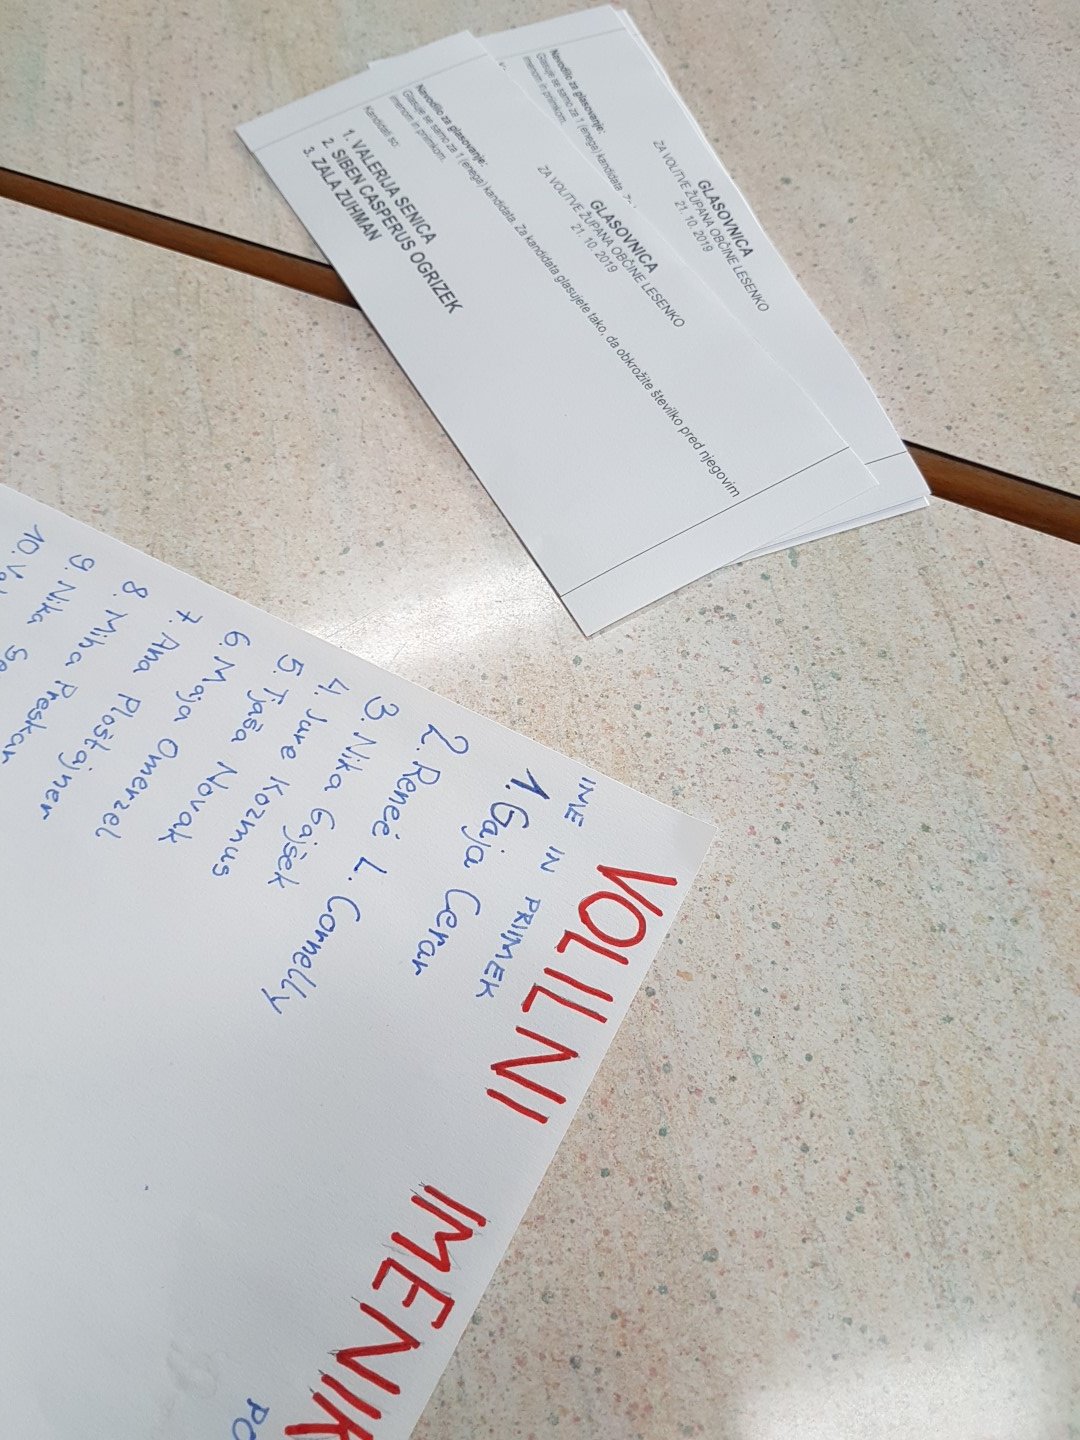 GLASOVNICA
ZA VOLITVE ŽUPANA OBČINE LESENKO
21. 10. 2019
Navodilo za glasovanje:
Glasuje se samo za 1 (enega) kandidata. Za kandidata glasujete tako, da obkrožite številko pred njegovim
imenom in priimkom.
Kandidati so:
1. VALERIJA SENICA
2. SIBEN CASPERUS OGRIZEK
3. ZALA ZUHMAN
GLASOVNICA
ZA VOLITVE ŽUPANA OBČINE LESENKO
21. 10. 2019
Navodilo za glasovanje:
Glasuje se samo za 1 (enega) kandidata.
imenom in priimkom.
VOLILNI IMENIK
IME IN PRIIMEK
1. Gaja Cerar
2. Reneé L. Cornelly
3. Nika Gajšek
4. Jure Kozmus
5. Tjaša Novak
6. Maja Omerzel
7. Ana Ploštajner
8. Miha Preskar
9. Nika
10.